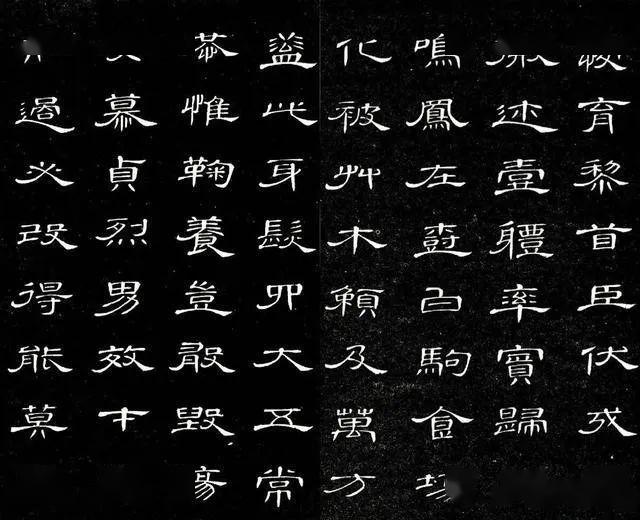 育黎首臣伏戎
迩壹體率賓歸
鳴鳳在樹白駒食場
化被艸木賴及萬方
蓋此身髮四大五常
恭惟鞠養豈敢毀傷
慕貞烈男效才
過必改得能莫